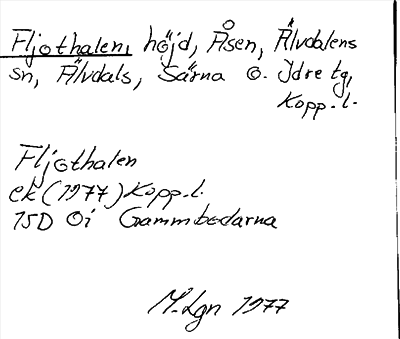 Fljothalen, höjd, Åsen, Älvdalens
sn, Älvdals, Särna o. Idre tg,
Kopp.l.
Fljothalen
ek (1977) Kopp.l.
15D 0i Gammbodarna
M.Lgn 1977